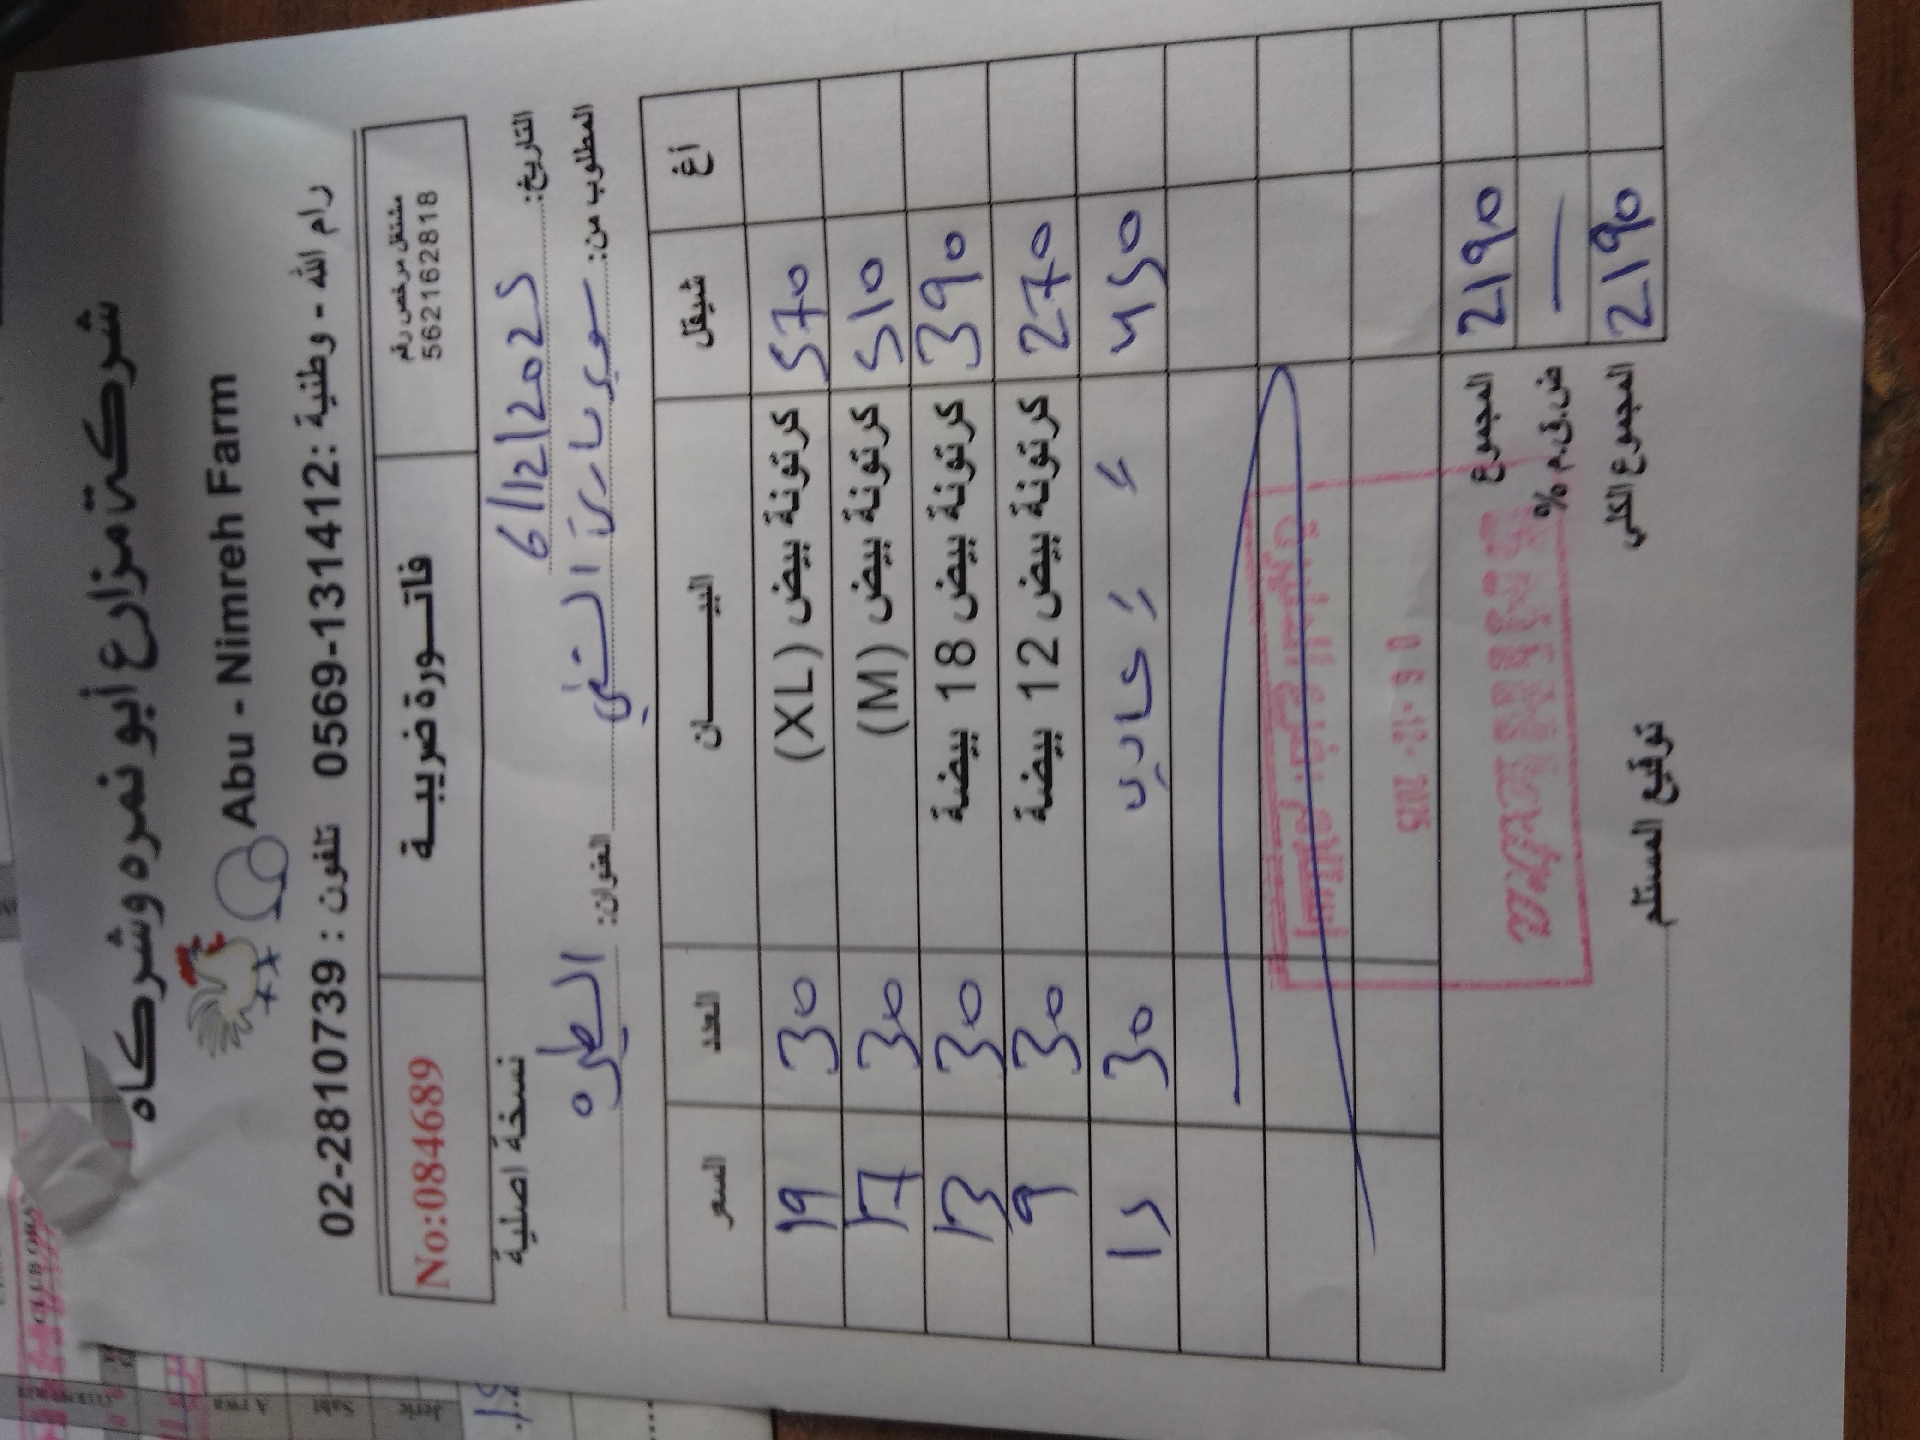 شركة مزارع أبو نمره وشركاه
Abu - Nimreh Farm
رام الله - وطنية : 0569-131412 تلفون : 02-2810739
مشتغل مرخص رقم
562162818
فاتـــورة ضريبيـــة
No:084689
التاريخ: 6/12/2025
نسخة اصلية
المطلوب من: سوبر ماركت العنوان: الطيره
أغ شيقل البيـــــان العدد السعر
570 كرتونة بيض (XL) 30 19
510 كرتونة بيض (M) 30 17
390 كرتونة بيض 18 بيضة 30 13
270 كرتونة بيض 12 بيضة 30 9
450 " " 30 15
06-12-2025
2190 المجموع
— ض.ق.م %
2190 المجموع الكلي
توقيع المستلم